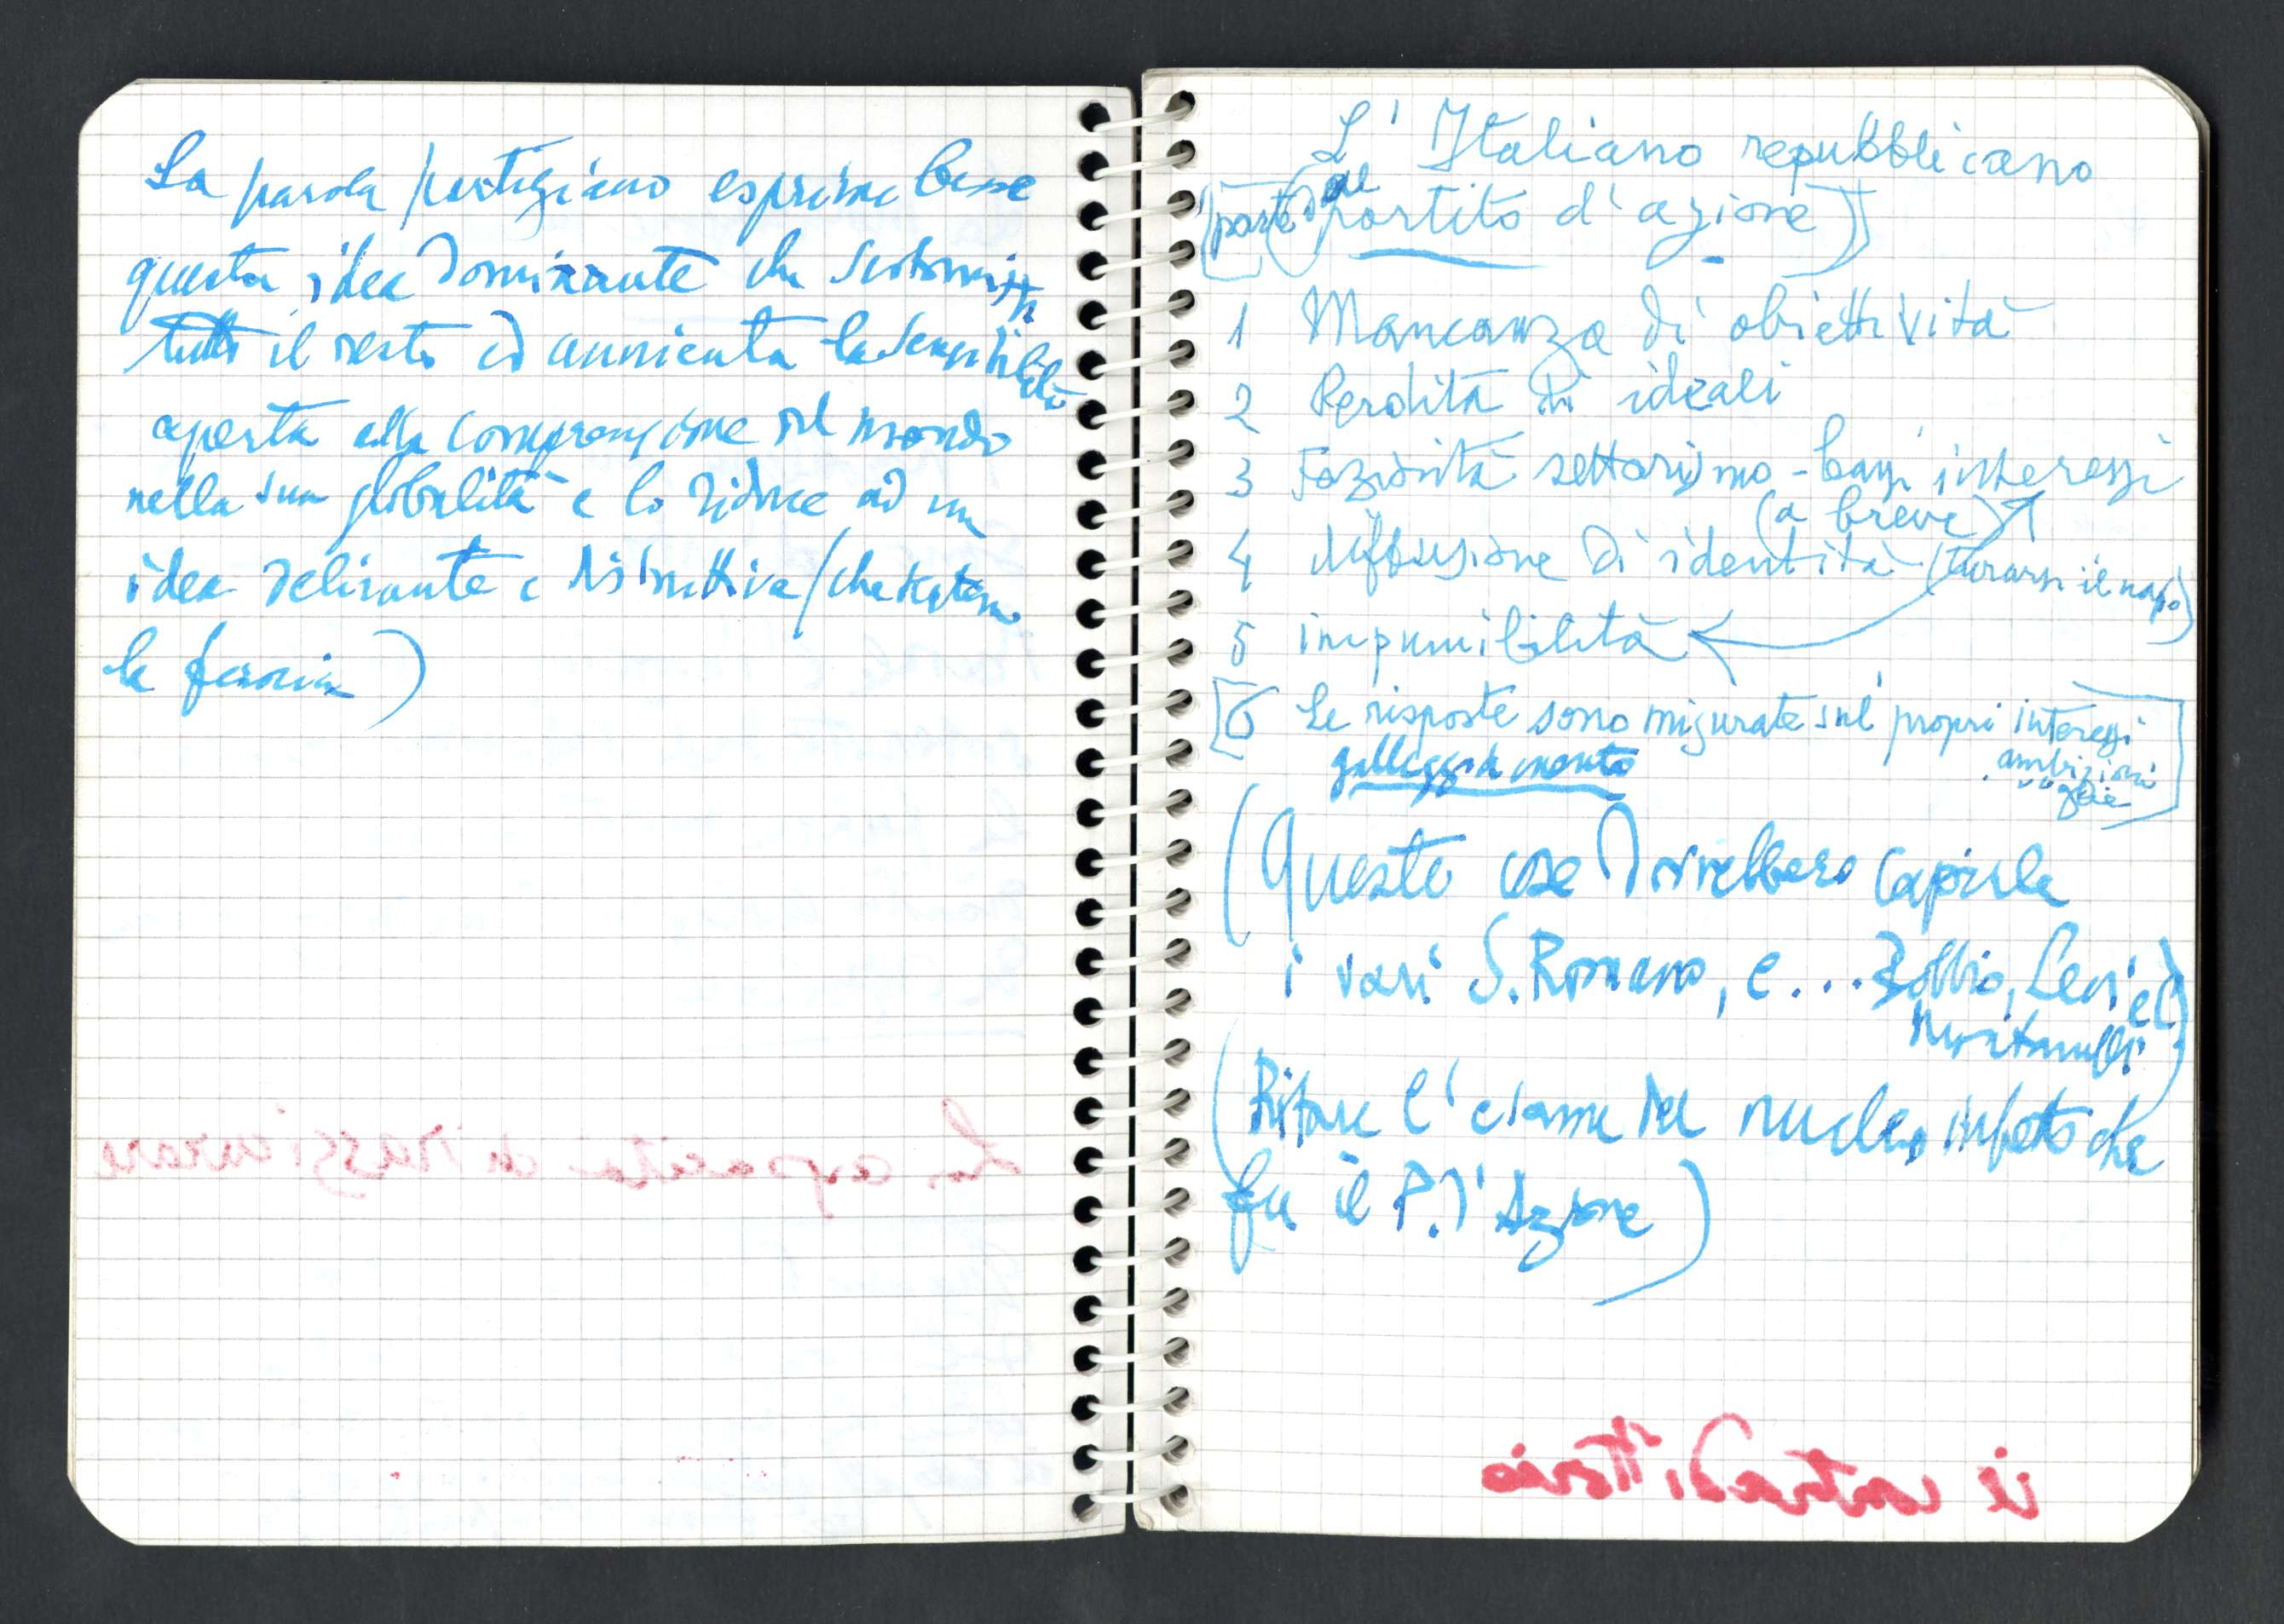 La parola partigiano esprime bene
questa idea dominante che scotomizza
tutto il resto ed annienta la sensibilità
aperta alla comprensione del mondo
nella sua globalità e lo riduce ad un
idea delirante e distruttiva (che scatena
la ferocia)
La capacità di rassicurare
L'Italiano repubblicano
(parte dal partito d'azione)
1 Mancanza di obiettività
2 Perdita di ideali
3 Faziosità settarismo - bassi interessi
(a breve)
4 diffusione di identità (turarsi il naso)
5 impunibilità
[6 Le risposte sono misurate sui propri interessi
galleggiamento
ambizioni
(Queste cose dovrebbero capirle
i vari S. Romano, e ... Bobbio, Levi, ed
Montanelli)
(Rifare l'esame del nucleo infetto che
fu il P. d'Azione)
il contraddittorio